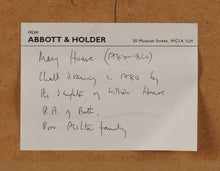 FROM
ABBOTT & HOLDER
30 Museum Street, WC1A 1LH
Mary Hoare (1744-1820)
Chalk Drawing c. 1780 by
the daughter of William Hoare
R.A. of Bath.
Prov: family